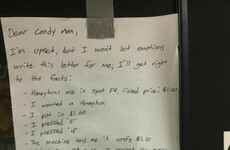 Dear Candy Man,
I'm upset, but I won't let emotions
write this letter for me; I'll get right
to the facts:
- Honeybuns are in spot F4, listed price: $1.00
- I wanted a Honeybun
- I put in $1.00
- I pressed F
- I pressed 4
- The machine told me it costs $1.10